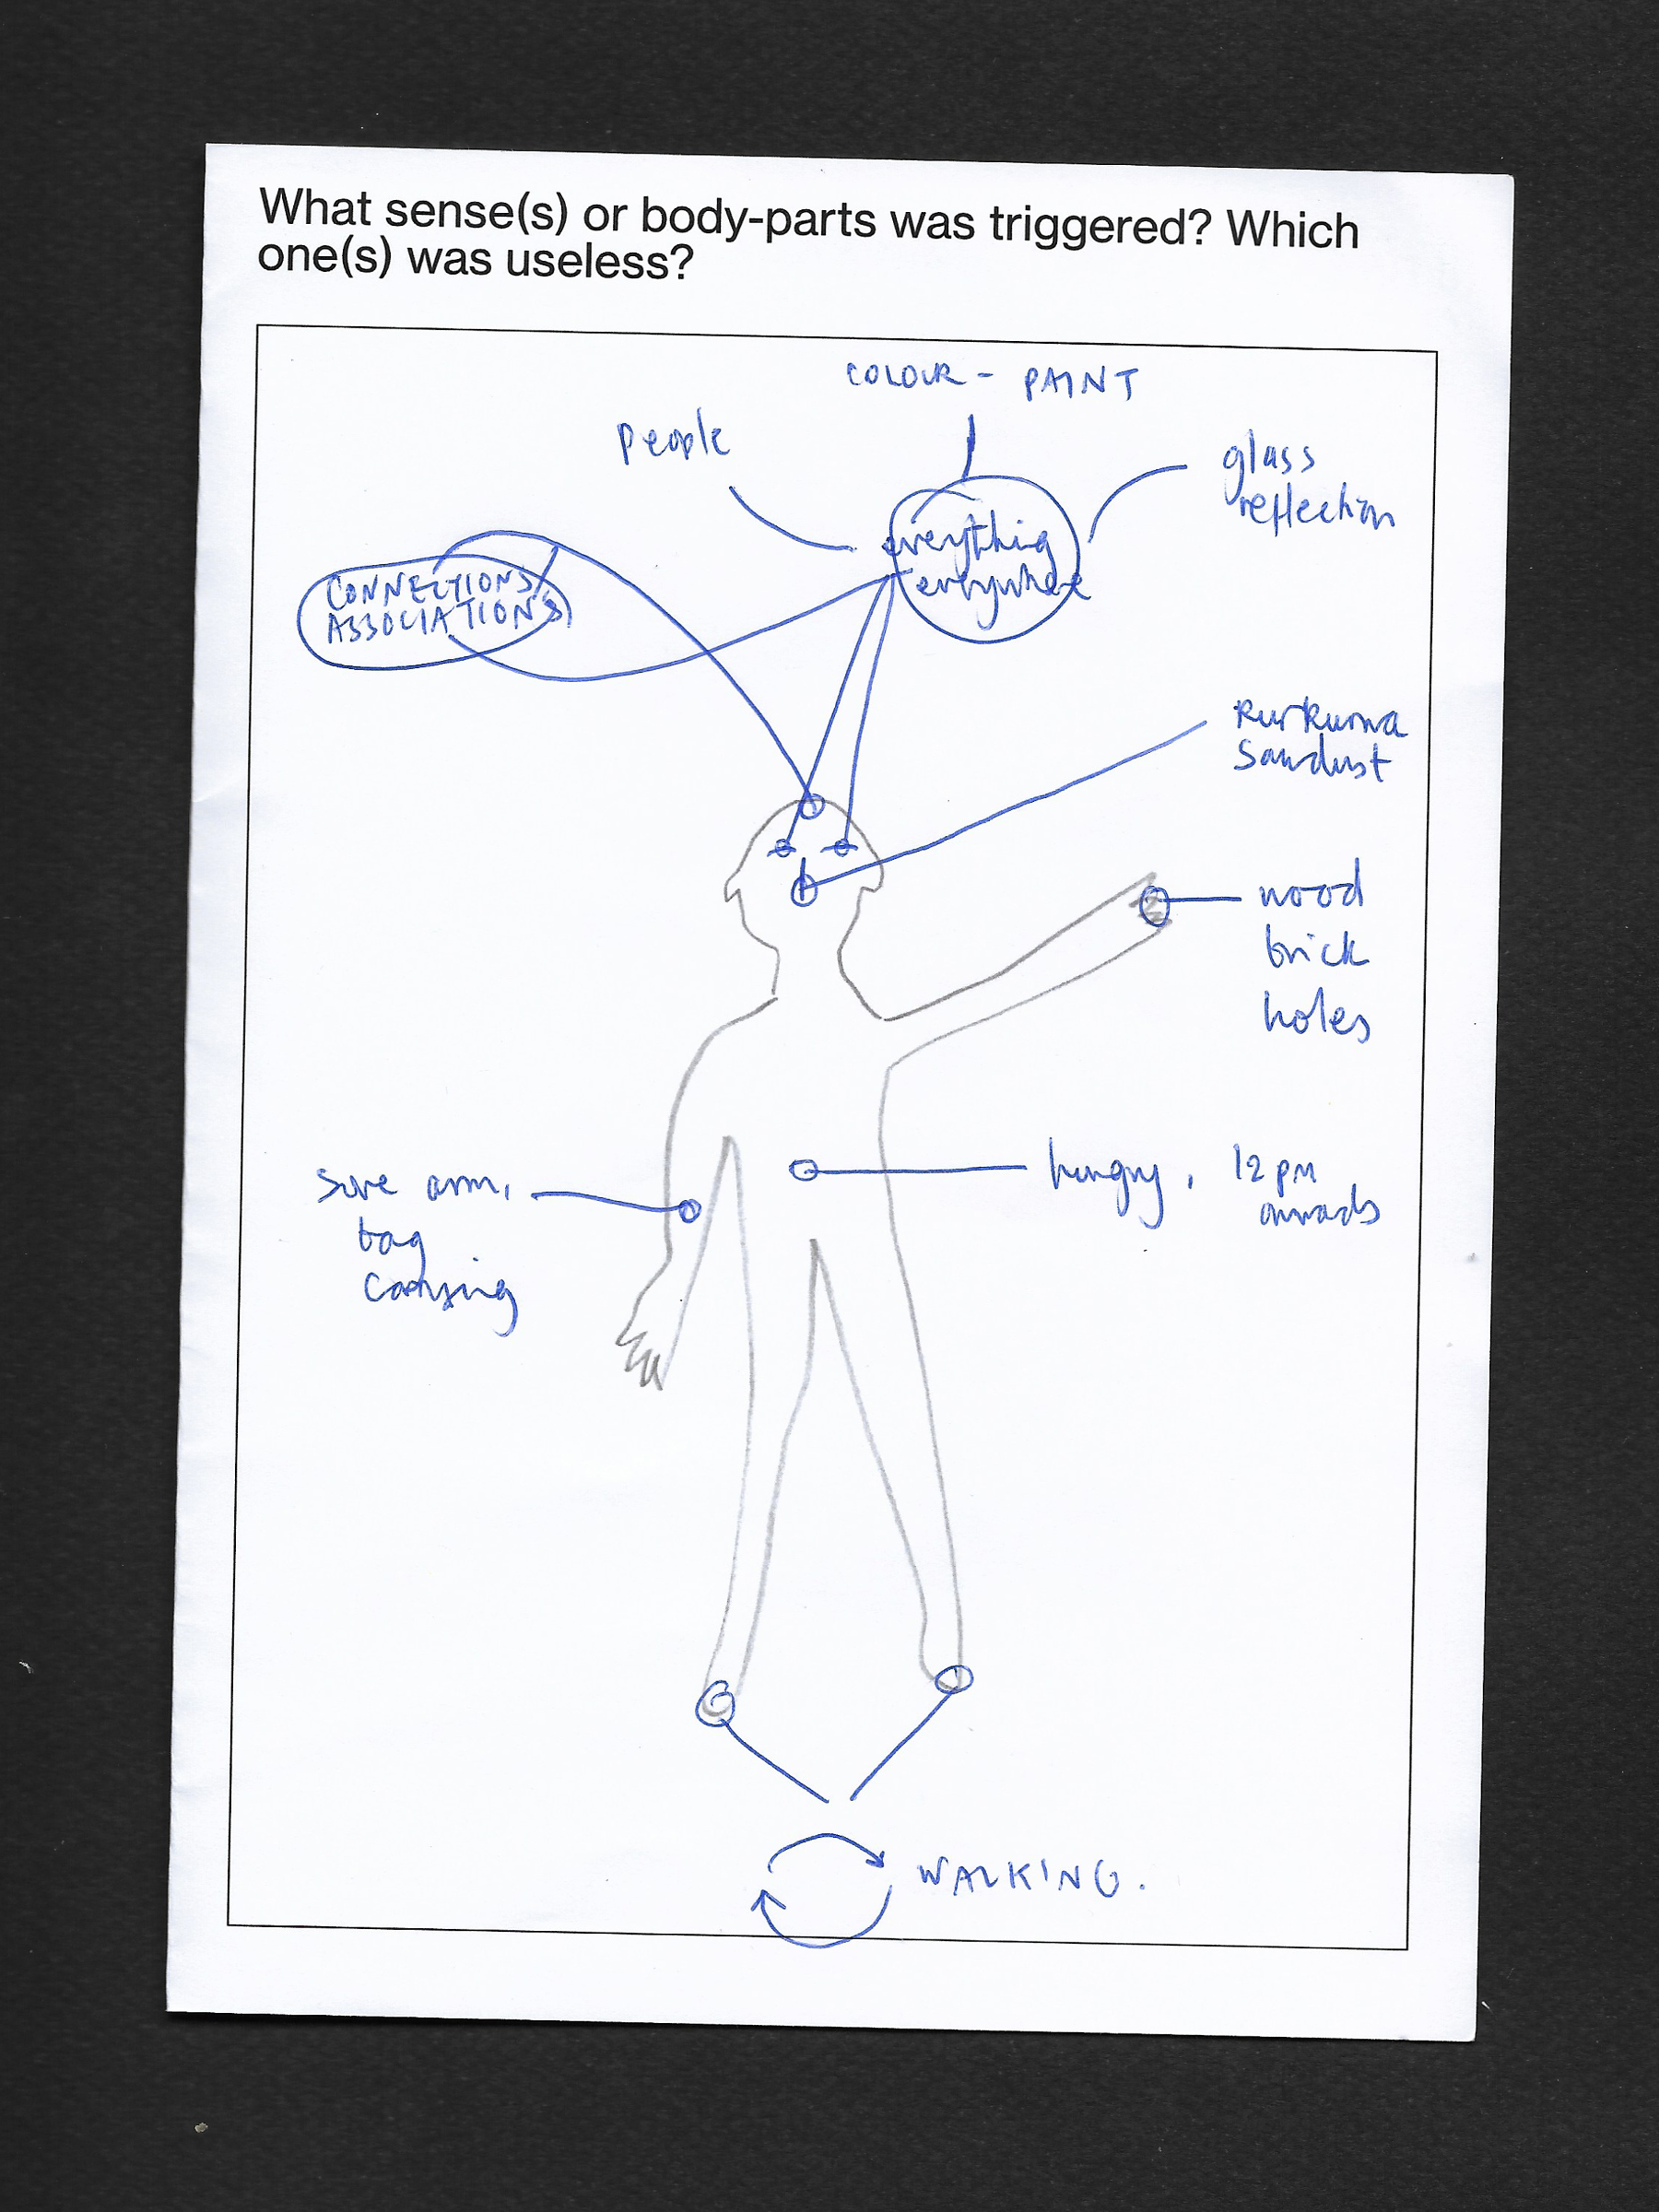 What sense(s) or body-parts was triggered? Which
one(s) was useless?
COLOUR - PAINT
people
glass
reflection
everything
everywhere
CONNECTIONS/
ASSOCIATIONS
kurkuma
sawdust
wood
brick
holes
sore arm,
bag
carrying
hungry, 12 pm
onwards
WALKING.